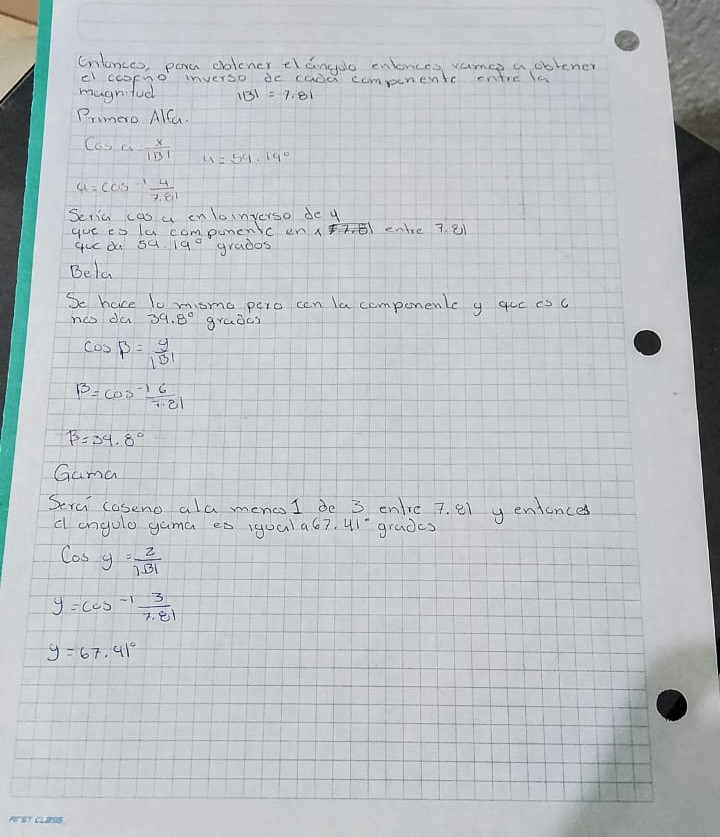 Entonces, para obtener el ángulo entonces vamos a obtener
el coseno inverso de cada componente entre la
magnitud |B| = 7.81
Primero Alfa.
Cos α = x/|B| α = 59.19°
α = cos⁻¹ 4/7.81
Sería cos α en lo inverso de 4
que es la componente en x entre 7.81
que da 59.19° grados
Beta
Se hace lo mismo pero con la componente y que es 6
nos da 39.8° grados
Cos β = y/|B|
β = cos⁻¹ 6/7.81
β = 39.8°
Gama
Será coseno a la menos 1 de 3 entre 7.81 y entonces
el angulo gama es igual a 67.41° grados
Cos y = z/|B|
y = cos⁻¹ 3/7.81
y = 67.41°
FIRST CLASS